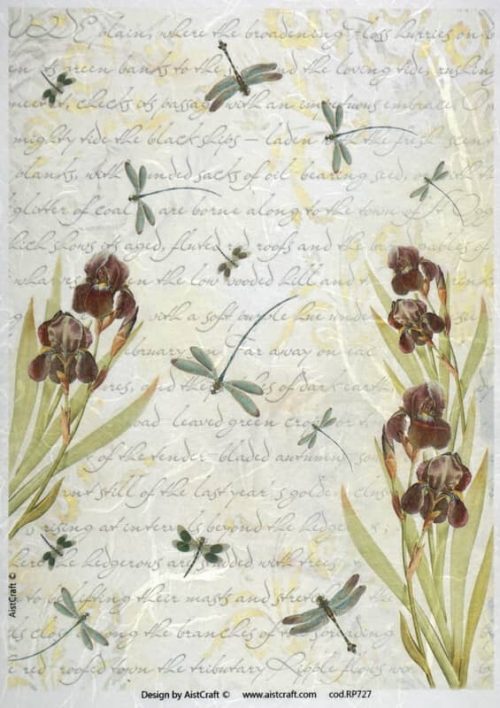 plain, where the broadening Floss hurries on b
green banks to the and the loving tide, rushing
meet it, checks its passag with an impetuous embrace. O
mighty tide the black ships – laden with the fresh scen
planks, with unded sacks of oil bearing seed, or
glitter of coal are borne along to the town of
hich shows its aged, fluted red roofs and the gables of
the low wooded hill and t
with a soft purple hue under
bruary Far away on ea
res, and the es of dark eart
oad leaved green crops
the tender bladed autumn sow
ant still of the last year's golden clus
rising at intervals beyond the hedger
here the hedgerows are studded with trees
to lifting their masts and stretc
s clos ong the branches of the spreading
e red roofed town the tributary Ripple flows
AistCraft ©
Design by AistCraft © www.aistcraft.com cod.RP727